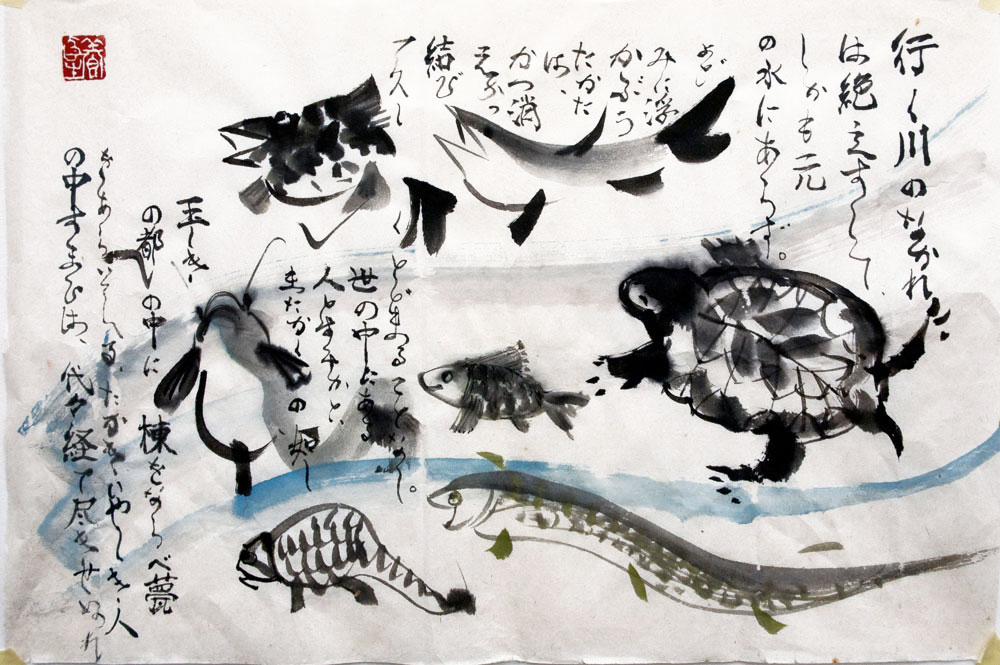 行く川のながれ
は絶えずして、
しかも元
の水にあらず。
よど
みに浮
かぶう
たかた
は、
かつ消
えかつ
結び
て久し
く
とどまることなし。
世の中にある
人とすみかと、
またかくの如し
玉しき
の都の中に棟をならべ甍
をあらそへる、たかきいやしき人
の中すまひは、代々経て尽きせぬ